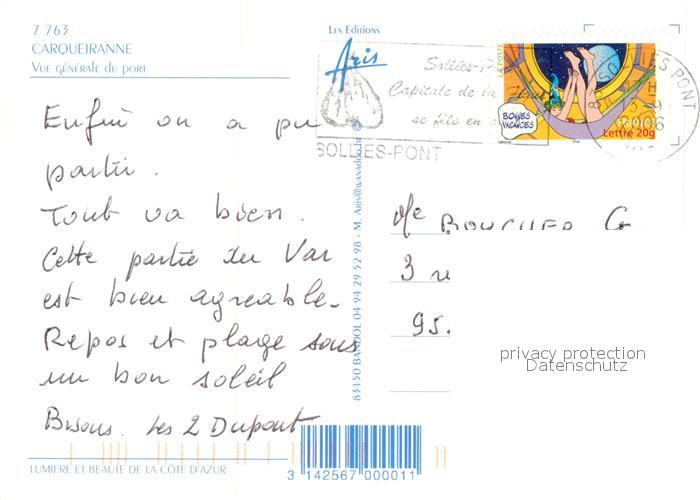 7 763
CARQUEIRANNE
VUE GÉNÉRALE DU PORT
Les Editions
Aris
Solliès-P
Capitale de la Figue
se fête en
SOLLIES-PONT
BONNES VACANCES
Lettre 20g
SOLLIES PONT
Enfin on a pu
partir.
Tout va bien.
Cette partie du Var
est bien agréable.
Repos et plage sous
un bon soleil
Bisous. Les 2 Dupont
83150 BANDOL 04 94 29 52 98 - M. Aris@wanadoo.fr ©
Me BOUCHER G
3
95.
privacy protection
Datenschutz
LUMIERE ET BEAUTE DE LA CÔTE D'AZUR
3 142567 000011